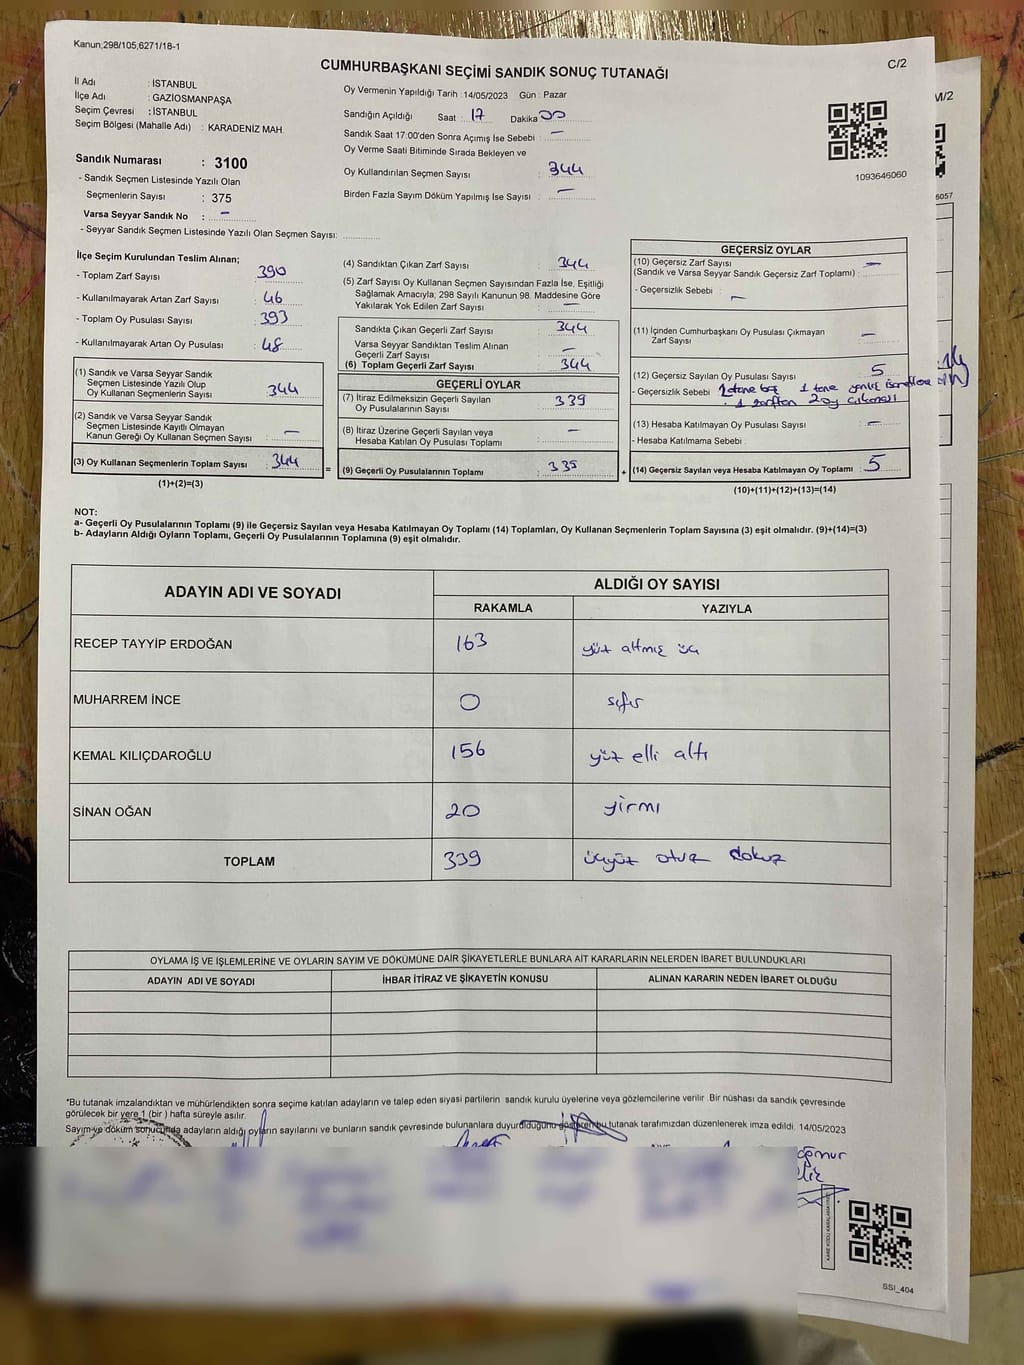 Kanun;298/105,6271/18-1
C/2
CUMHURBAŞKANI SEÇİMİ SANDIK SONUÇ TUTANAĞI
İl Adı : İSTANBUL
İlçe Adı : GAZİOSMANPAŞA
Seçim Çevresi : İSTANBUL
Seçim Bölgesi (Mahalle Adı) : KARADENİZ MAH.
Sandık Numarası : 3100
- Sandık Seçmen Listesinde Yazılı Olan
Seçmenlerin Sayısı : 375
Varsa Seyyar Sandık No : -
- Seyyar Sandık Seçmen Listesinde Yazılı Olan Seçmen Sayısı:
Oy Vermenin Yapıldığı Tarih :14/05/2023 Gün : Pazar
Sandığın Açıldığı Saat : 17 Dakika 00
Sandık Saat 17:00'den Sonra Açımış İse Sebebi : -
Oy Verme Saati Bitiminde Sırada Bekleyen ve
Oy Kullandırılan Seçmen Sayısı : 344
Birden Fazla Sayım Döküm Yapılmış İse Sayısı : -
1093646060
M/2
6057
İlçe Seçim Kurulundan Teslim Alınan;
- Toplam Zarf Sayısı : 390
- Kullanılmayarak Artan Zarf Sayısı : 46
- Toplam Oy Pusulası Sayısı : 393
- Kullanılmayarak Artan Oy Pusulası : 48
(1) Sandık ve Varsa Seyyar Sandık
Seçmen Listesinde Yazılı Olup
Oy Kullanan Seçmenlerin Sayısı : 344
(2) Sandık ve Varsa Seyyar Sandık
Seçmen Listesinde Kayıtlı Olmayan
Kanun Gereği Oy Kullanan Seçmen Sayısı : -
(3) Oy Kullanan Seçmenlerin Toplam Sayısı : 344
(1)+(2)=(3)
=
(4) Sandıktan Çıkan Zarf Sayısı : 344
(5) Zarf Sayısı Oy Kullanan Seçmen Sayısından Fazla İse, Eşitliği
Sağlamak Amacıyla, 298 Sayılı Kanunun 98. Maddesine Göre
Yakılarak Yok Edilen Zarf Sayısı : -
Sandıkta Çıkan Geçerli Zarf Sayısı : 344
Varsa Seyyar Sandıktan Teslim Alınan
Geçerli Zarf Sayısı : -
(6) Toplam Geçerli Zarf Sayısı : 344
GEÇERLİ OYLAR
(7) İtiraz Edilmeksizin Geçerli Sayılan
Oy Pusulalarının Sayısı : 339
(8) İtiraz Üzerine Geçerli Sayılan veya
Hesaba Katılan Oy Pusulası Toplamı : -
(9) Geçerli Oy Pusulalarının Toplamı : 339
+
GEÇERSİZ OYLAR
(10) Geçersiz Zarf Sayısı
(Sandık ve Varsa Seyyar Sandık Geçersiz Zarf Toplamı) : -
- Geçersizlik Sebebi : -
(11) İçinden Cumhurbaşkanı Oy Pusulası Çıkmayan
Zarf Sayısı : -
(12) Geçersiz Sayılan Oy Pusulası Sayısı : 5
- Geçersizlik Sebebi : 1 tane
1 zarftan 2 oy çıkması
(13) Hesaba Katılmayan Oy Pusulası Sayısı : -
- Hesaba Katılmama Sebebi :
(14) Geçersiz Sayılan veya Hesaba Katılmayan Oy Toplamı : 5
(10)+(11)+(12)+(13)=(14)
NOT:
a- Geçerli Oy Pusulalarının Toplamı (9) ile Geçersiz Sayılan veya Hesaba Katılmayan Oy Toplamı (14) Toplamları, Oy Kullanan Seçmenlerin Toplam Sayısına (3) eşit olmalıdır. (9)+(14)=(3)
b- Adayların Aldığı Oyların Toplamı, Geçerli Oy Pusulalarının Toplamına (9) eşit olmalıdır.
ADAYIN ADI VE SOYADI ALDIĞI OY SAYISI
RAKAMLA YAZIYLA
RECEP TAYYİP ERDOĞAN 163 yüz altmış üç
MUHARREM İNCE 0 sıfır
KEMAL KILIÇDAROĞLU 156 yüz elli altı
SİNAN OĞAN 20 yirmi
TOPLAM 339 üçyüz otuz dokuz
OYLAMA İŞ VE İŞLEMLERİNE VE OYLARIN SAYIM VE DÖKÜMÜNE DAİR ŞİKAYETLERLE BUNLARA AİT KARARLARIN NELERDEN İBARET BULUNDUKLARI
ADAYIN ADI VE SOYADI İHBAR İTİRAZ VE ŞİKAYETİN KONUSU ALINAN KARARIN NEDEN İBARET OLDUĞU
*Bu tutanak imzalandıktan ve mühürlendikten sonra seçime katılan adayların ve talep eden siyasi partilerin sandık kurulu üyelerine veya gözlemcilerine verilir .Bir nüshası da sandık çevresinde
görülecek bir yere 1 (bir ) hafta süreyle asılır.
Sayım ve döküm sonucunda adayların aldığı oyların sayılarını ve bunların sandık çevresinde bulunanlara duyurulduğunu gösteren bu tutanak tarafımızdan düzenlenerek imza edildi. 14/05/2023
SSI_404